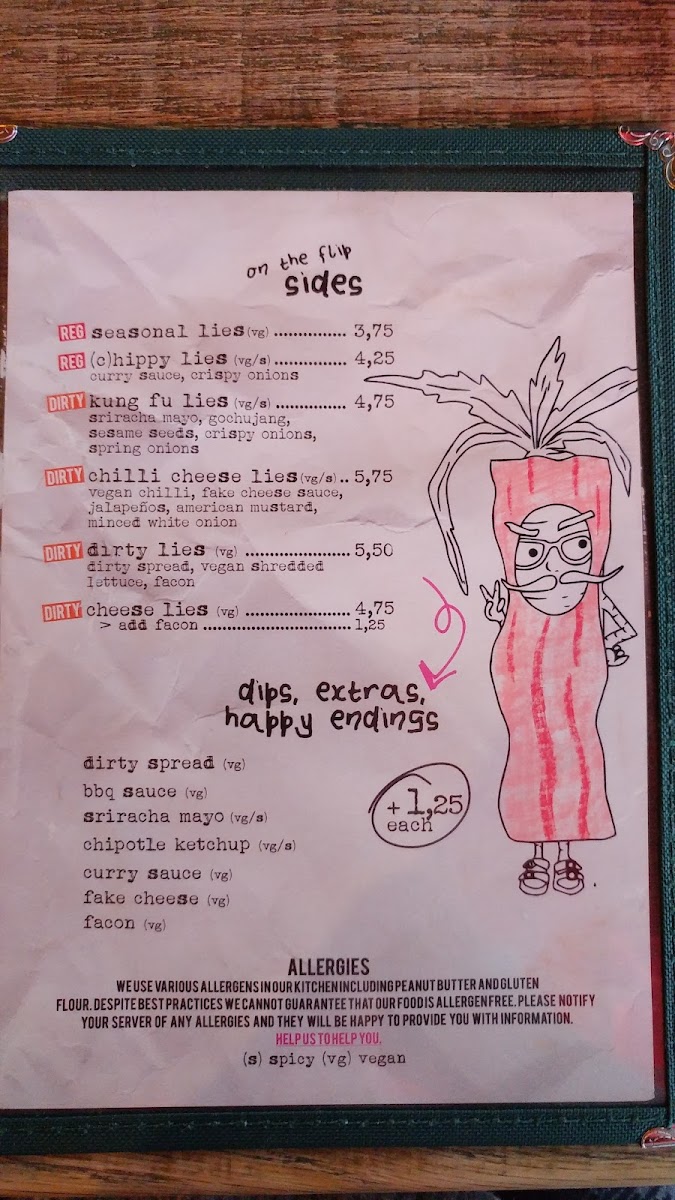 on the flip
sides
REG seasonal lies (vg) ............... 3,75
REG (c)hippy lies (vg/s) ............... 4,25
curry sauce, crispy onions
DIRTY kung fu lies (vg/s) ............... 4,75
sriracha mayo, gochujang,
sesame seeds, crispy onions,
spring onions
DIRTY chilli cheese lies (vg/s) .. 5,75
vegan chilli, fake cheese sauce,
jalapeños, american mustard,
minced white onion
DIRTY dirty lies (vg) ..................... 5,50
dirty spread, vegan shredded
lettuce, facon
DIRTY cheese lies (vg) ..................... 4,75
> add facon .............................. 1,25
dips, extras,
happy endings
dirty spread (vg)
bbq sauce (vg)
sriracha mayo (vg/s)
chipotle ketchup (vg/s)
curry sauce (vg)
fake cheese (vg)
facon (vg)
+ 1,25
each
ALLERGIES
WE USE VARIOUS ALLERGENS IN OUR KITCHEN INCLUDING PEANUT BUTTER AND GLUTEN
FLOUR. DESPITE BEST PRACTICES WE CANNOT GUARANTEE THAT OUR FOOD IS ALLERGEN FREE. PLEASE NOTIFY
YOUR SERVER OF ANY ALLERGIES AND THEY WILL BE HAPPY TO PROVIDE YOU WITH INFORMATION.
HELP US TO HELP YOU.
(s) spicy (vg) vegan